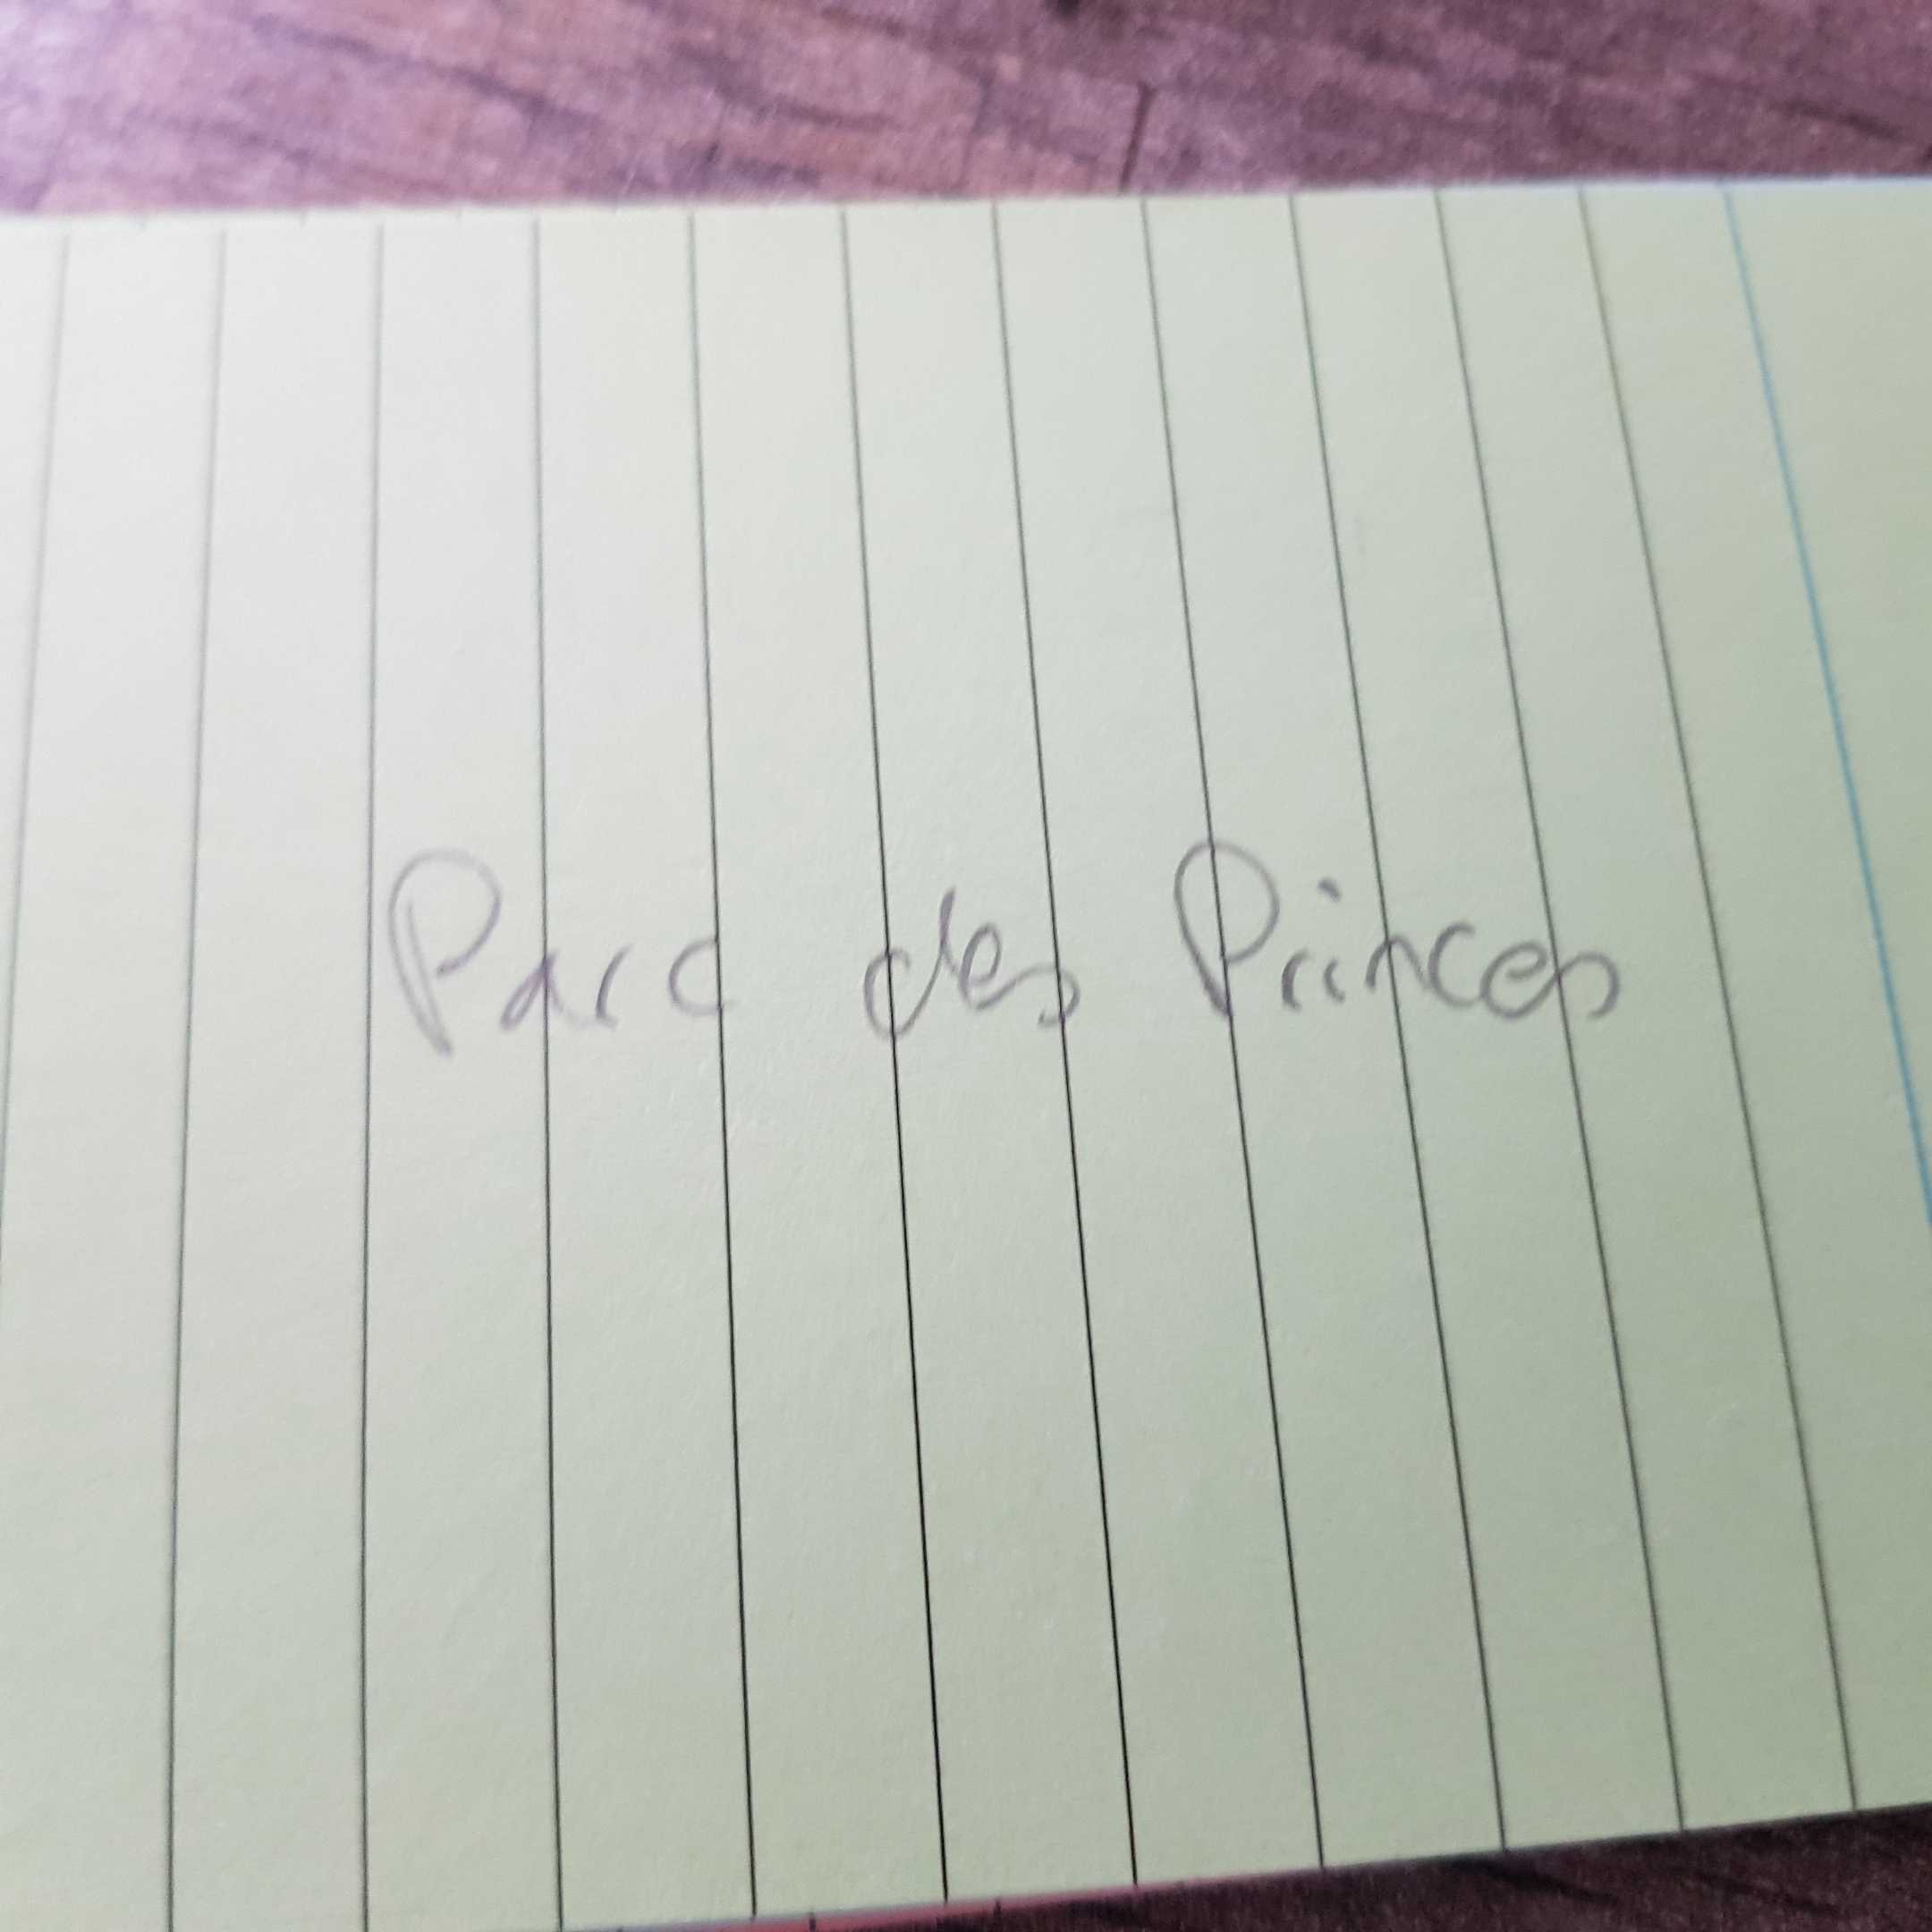 Parc des Princes